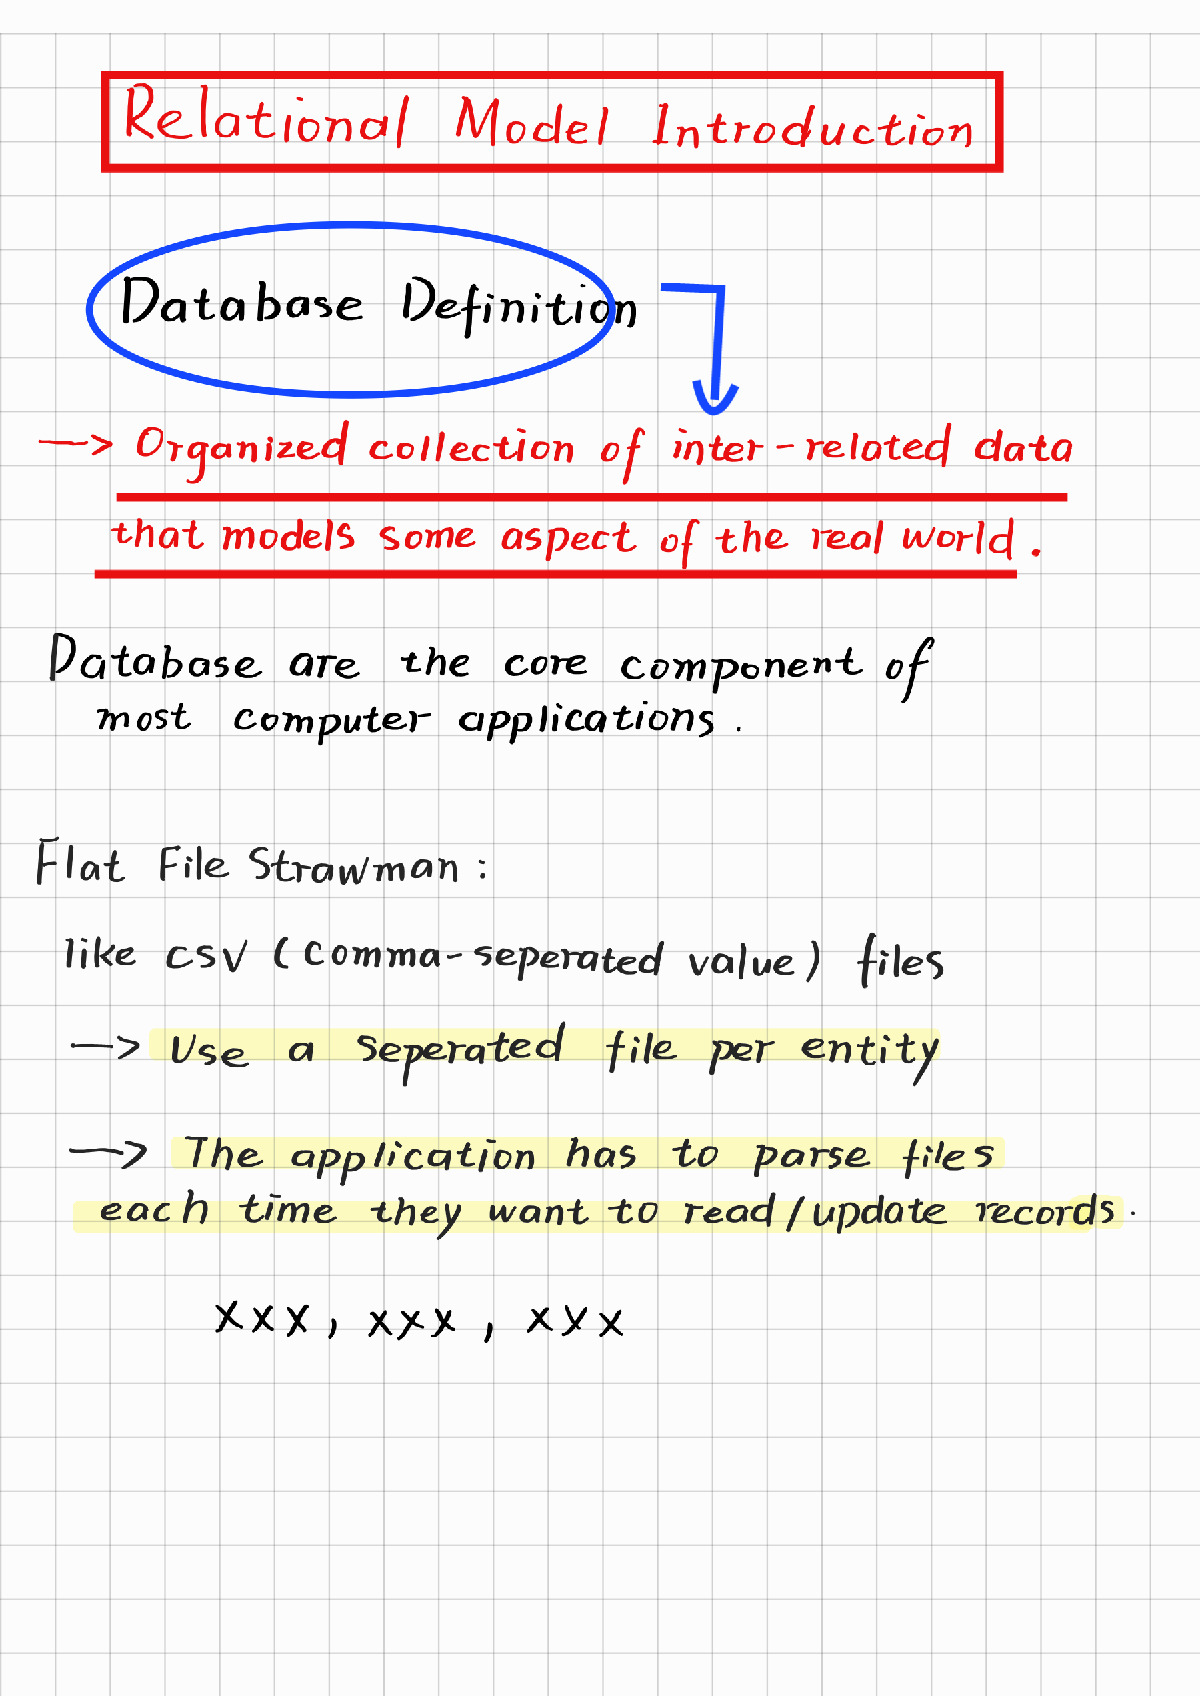 Relational Model Introduction
Database Definition
→ Organized collection of inter-related data
that models some aspect of the real world.
Database are the core component of
most computer applications.
Flat File Strawman:
like csv (comma-seperated value) files
→ Use a seperated file per entity
→ The application has to parse files
each time they want to read/update records.
xxx, xxx, xxx